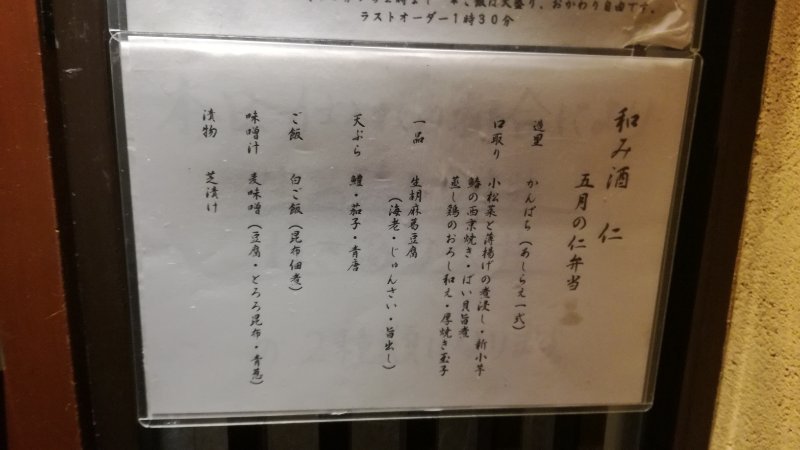 ご飯は大盛り、おかわり自由です。
ラストオーダー1時30分
和み酒 仁
五月の仁弁当
造里 かんぱち（あしらえ一式）
口取り 小松菜と薄揚げの煮浸し・新小芋
鰆の西京焼き・ばい貝旨煮
蒸し鶏のおろし和え・厚焼き玉子
一品 生胡麻葛豆腐
（海老・じゅんさい・旨出し）
天ぷら 鱧・茄子・青唐
ご飯 白ご飯（昆布佃煮）
味噌汁 麦味噌（豆腐・とろろ昆布・青葱）
漬物 芝漬け